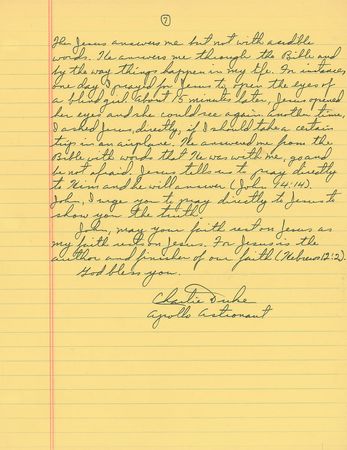 7
Then Jesus answers me but not with audible
words. He answers me through the Bible and
by the way things happen in my life. For instance
one day I prayed for Jesus to open the eyes of
a blind girl. About 15 minutes later, Jesus opened
her eyes and she could see again. Another time,
I asked Jesus, directly, if I should take a certain
trip in an airplane. He answered me from the
Bible with words that He was with me, go and
be not afraid. Jesus tells us to pray directly
to Him and he will answer (John 14:14).
John, I urge you to pray directly to Jesus to
show you the truth.
John, may your faith rest on Jesus as
my faith rests on Jesus. For Jesus is the
author and finisher of our faith (Hebrews 12:2).
God bless you.
Charlie Duke
Apollo Astronaut